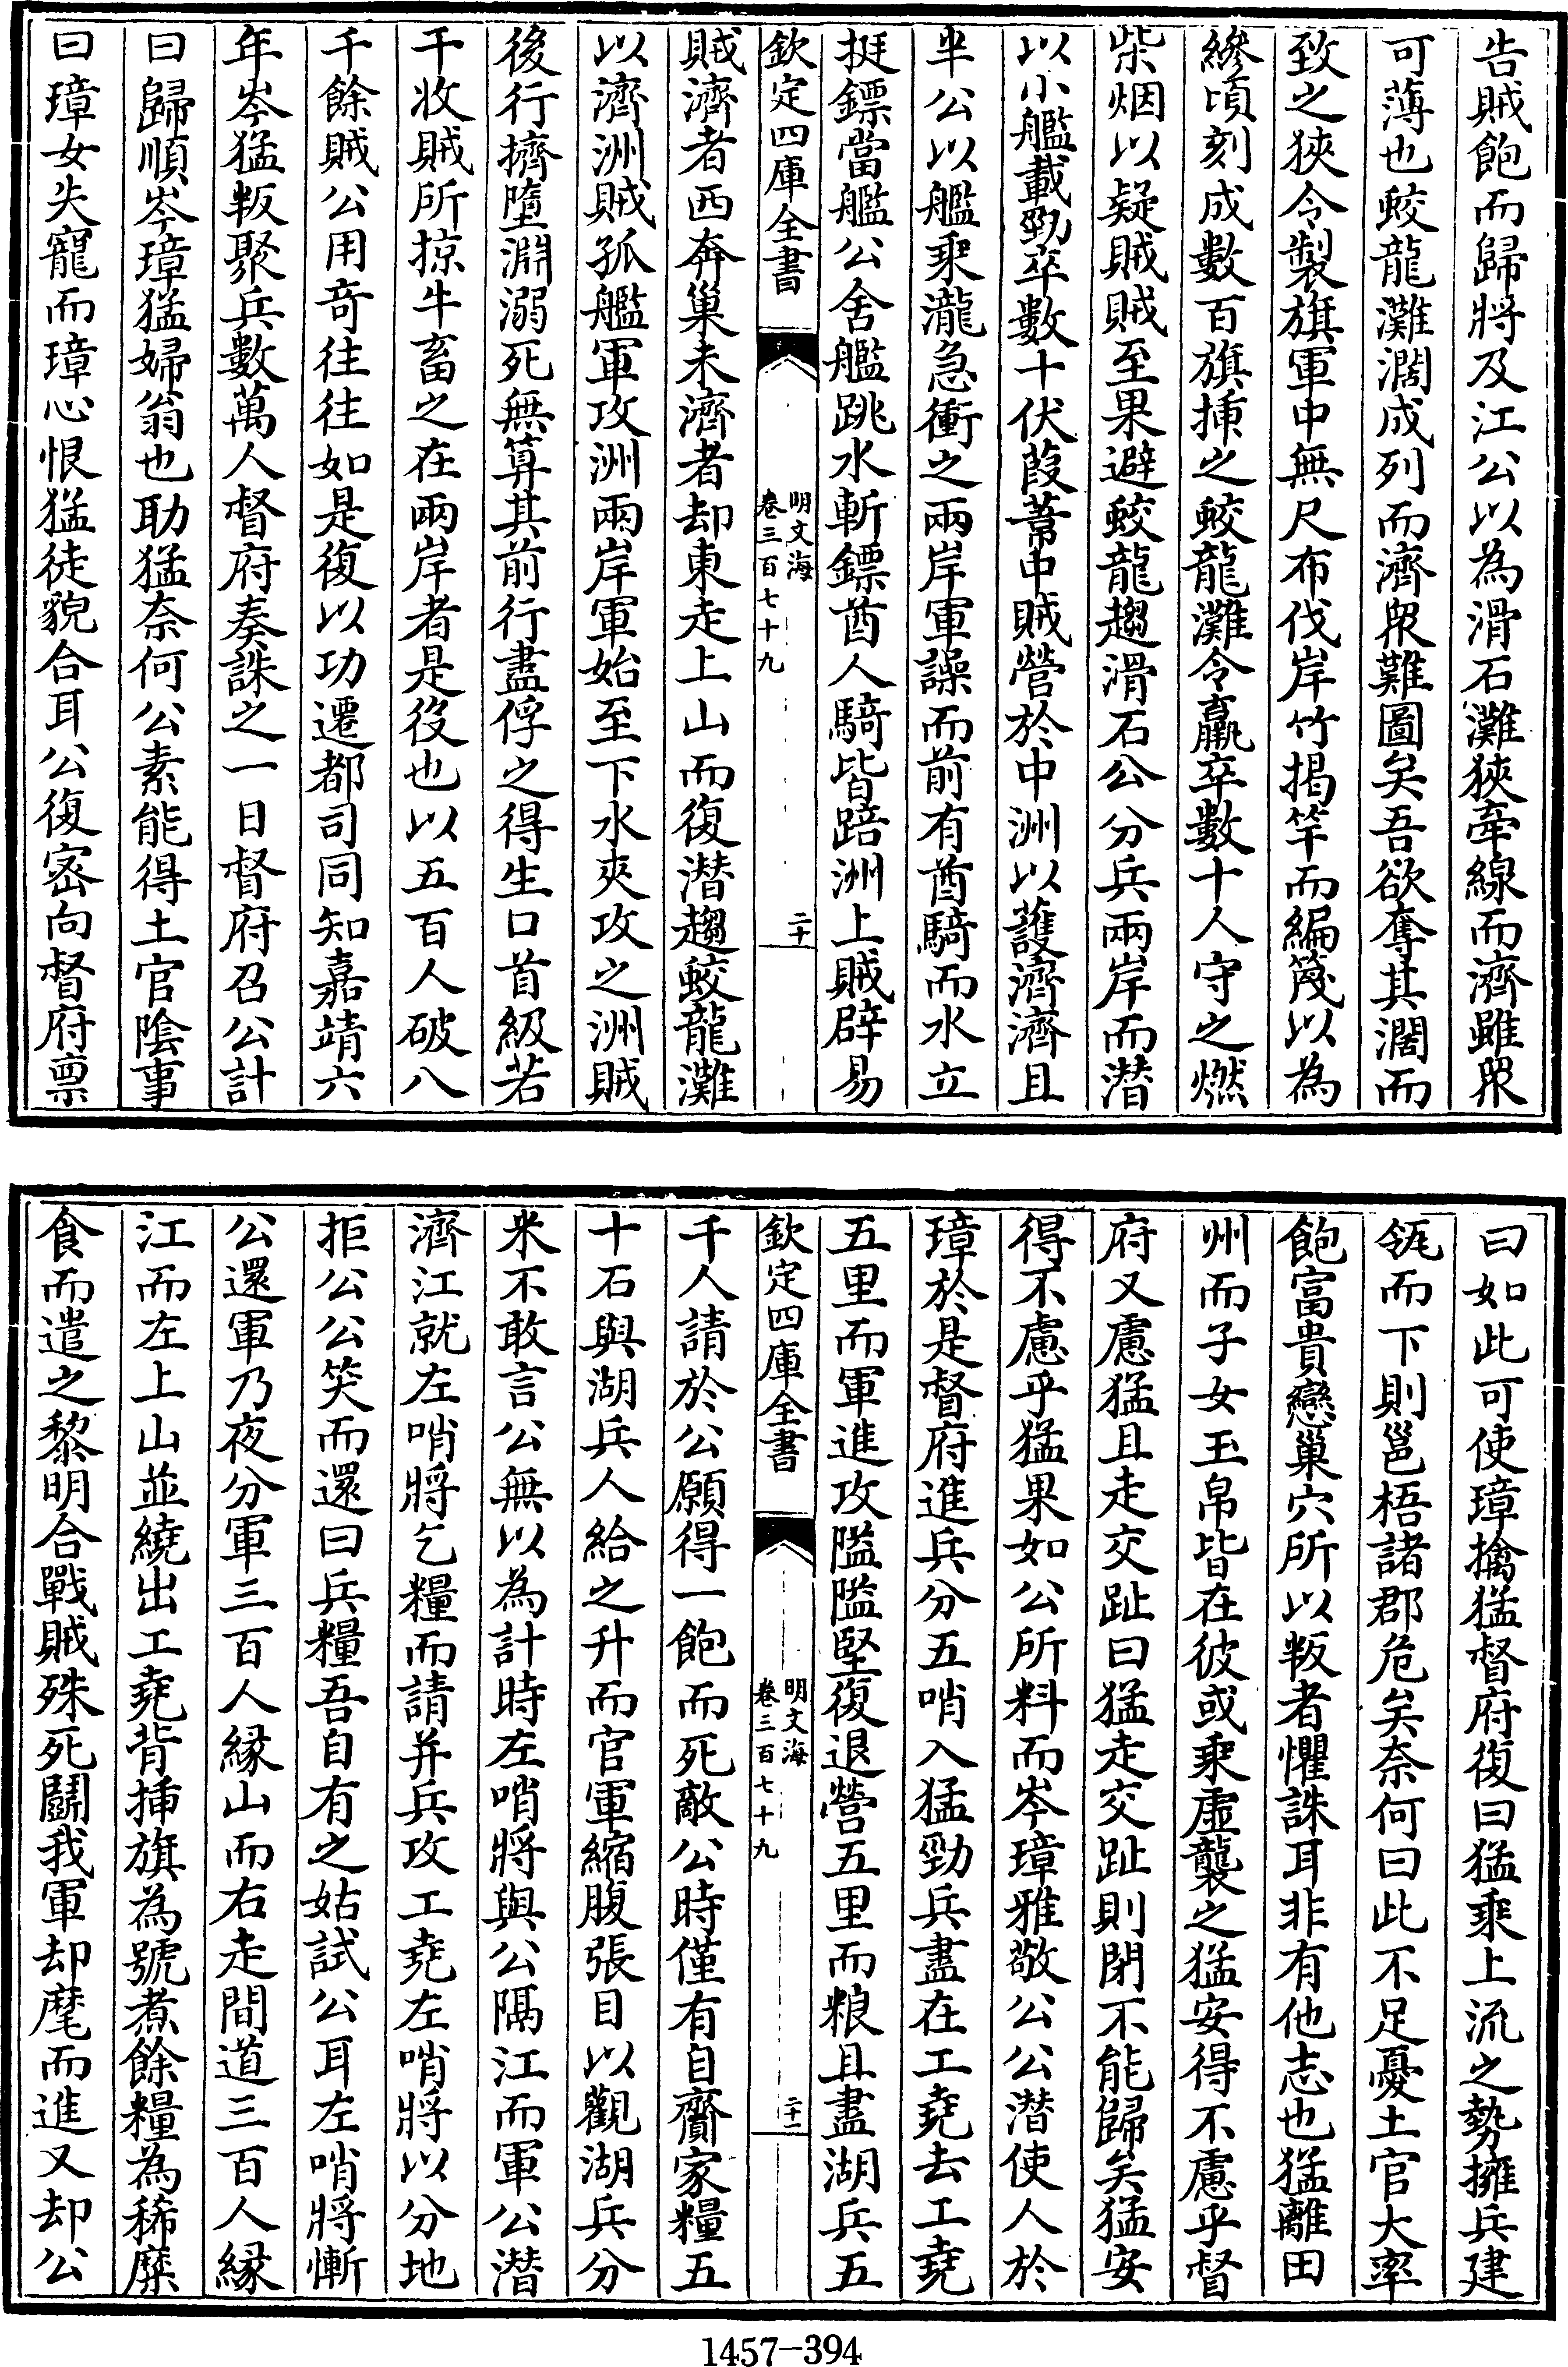 告賊飽而歸將及江公以為滑石灘狹牽線而濟雖衆
可薄也蛟龍灘濶成列而濟衆難圖矣吾欲奪其濶而
致之狹令製旗軍中無尺布伐岸竹揭竿而編篾以為
縿頃刻成數百旗揷之蛟龍灘令羸卒數十人守之燃
柴烟以疑賊賊至果避蛟龍趨滑石公分兵兩岸而潜
以小艦載勁卒數十伏葭葦中賊營於中洲以護濟濟且
半公以艦乘瀧急衝之兩岸軍譟而前有酋騎而水立
挺鏢當艦公舍艦跳水斬鏢酋人騎皆踣洲上賊辟易
欽定四庫全書
明文海
卷三百七十九
二十
賊濟者西奔巢未濟者却東走上山而復潜趨蛟龍灘
以濟洲賊孤艦軍攻洲兩岸軍始至下水夾攻之洲賊
後行擠墮淵溺死無算其前行盡俘之得生口首級若
干收賊所掠牛畜之在兩岸者是役也以五百人破八
千餘賊公用竒往往如是復以功遷都司同知嘉靖六
年岑猛叛聚兵數萬人督府奏誅之一日督府召公計
曰歸順岑璋猛婦翁也助猛奈何公素能得土官隂事
曰璋女失寵而璋心恨猛徒貌合耳公復宻向督府禀
曰如此可使璋擒猛督府復曰猛乘上流之勢擁兵建
瓴而下則邕梧諸郡危矣奈何曰此不足憂土官大率
飽富貴戀巢穴所以叛者懼誅耳非有他志也猛離田
州而子女玉帛皆在彼或乘虛襲之猛安得不慮乎督
府又慮猛且走交趾曰猛走交趾則閉不能歸矣猛安
得不慮乎猛果如公所料而岑璋雅敬公公潜使人於
璋於是督府進兵分五哨入猛勁兵盡在工堯去工堯
五里而軍進攻隘隘堅復退營五里而粮且盡湖兵五
欽定四庫全書
明文海
卷三百七十九
二十一
千人請於公願得一飽而死敵公時僅有自齎家糧五
十石與湖兵人給之升而官軍縮腹張目以觀湖兵分
米不敢言公無以為計時左哨將與公隔江而軍公潜
濟江就左哨將乞糧而請并兵攻工堯左哨將以分地
拒公公笑而還曰兵糧吾自有之姑試公耳左哨將慚
公還軍乃夜分軍三百人緣山而右走間道三百人緣
江而左上山並繞出工堯背揷旗為號煮餘糧為稀糜
食而遣之黎明合戰賊殊死鬭我軍却麾而進又却公
1457-394